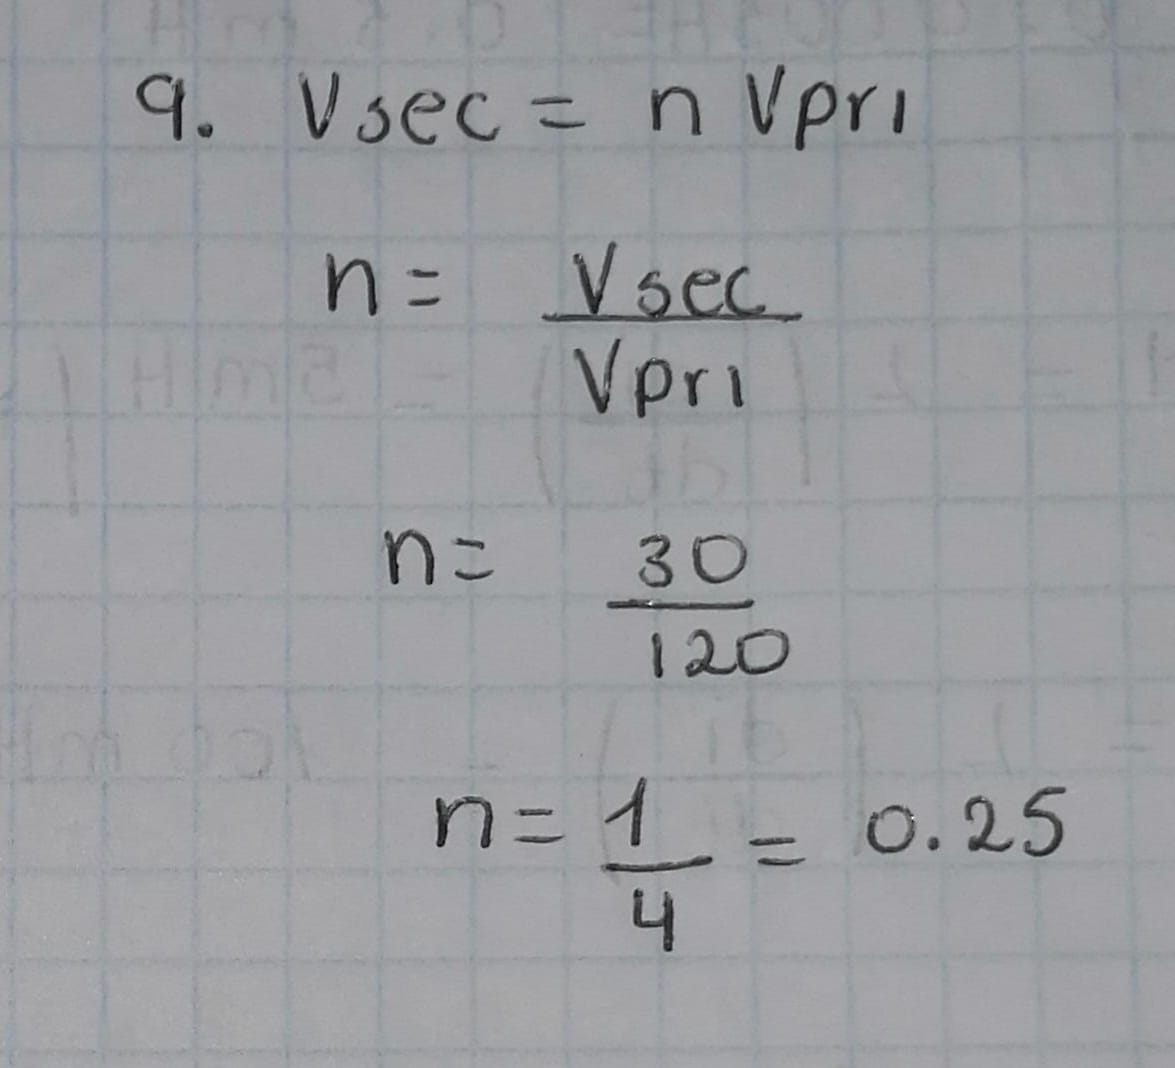 9. Vsec = n Vpri
n = Vsec / Vpri
n = 30 / 120
n = 1 / 4 = 0.25